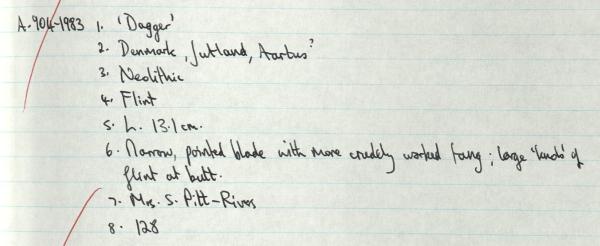 A.904-1983 1. 'Dagger'
2. Denmark, Jutland, Aarhus?
3. Neolithic
4. Flint
5. L. 13.1 cm.
6. Narrow, pointed blade with more crudely worked tang; large 'knob' of
flint at butt.
7. Mrs. S. Pitt-Rivers
8. 128